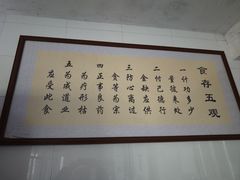 食存五观
一计功多少
量彼来处
二忖己德行
全缺应供
三防心离过
贪等为宗
四正事良药
为疗形枯
五为成道业
应受此食